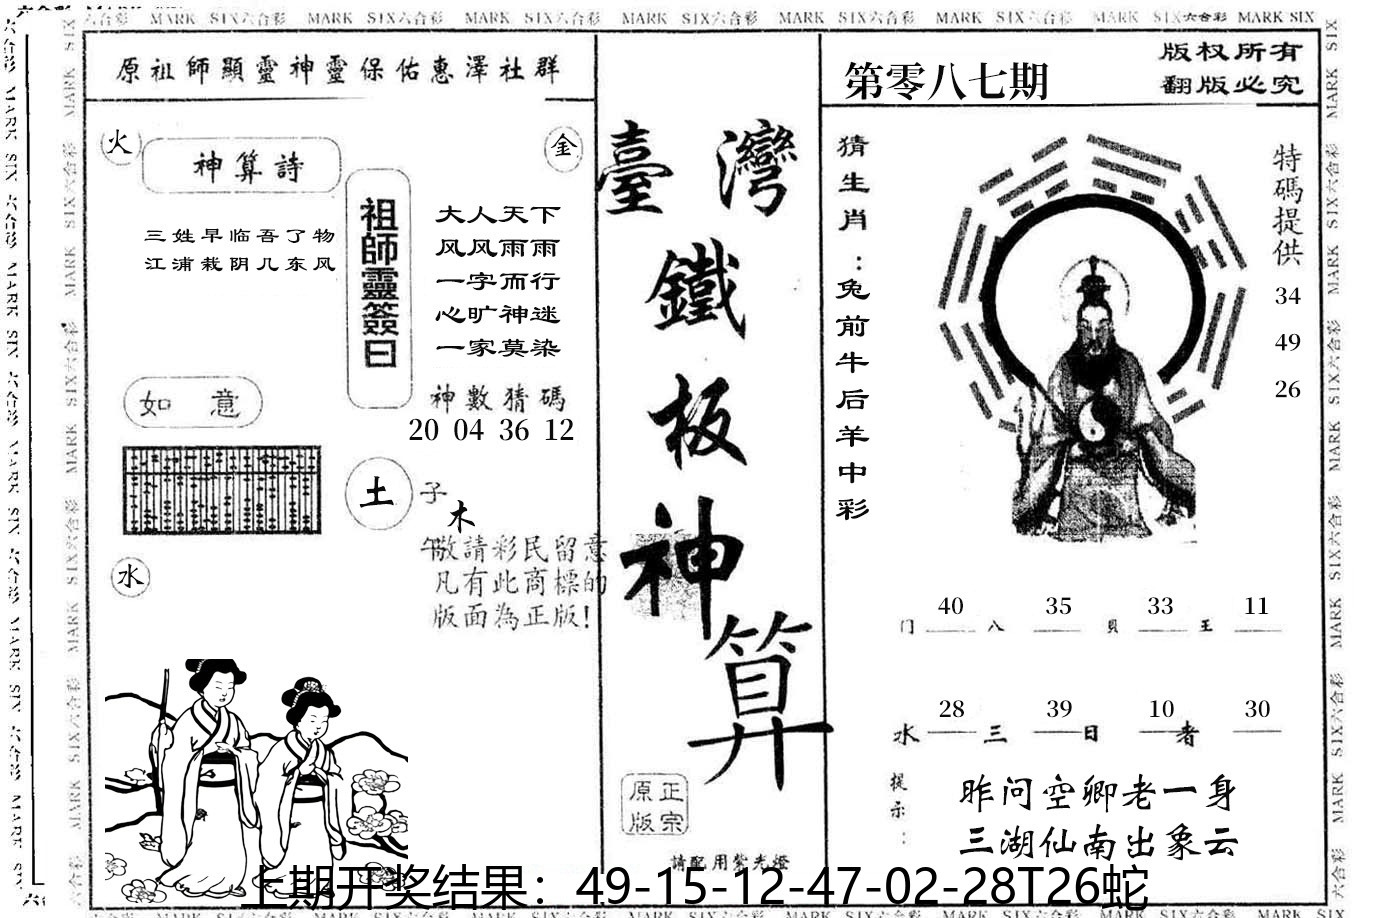 MARK SIX六合彩 MARK SIX六合彩 MARK SIX六合彩 MARK SIX六合彩 MARK SIX六合彩 MARK SIX六合彩 MARK SIX六合彩 MARK SIX
原祖師顯靈神靈保佑惠澤社群
火
金
神算詩
三姓早临吾了物
江浦栽阴几东风
祖師靈簽曰
大人天下
风风雨雨
一字而行
心旷神迷
一家莫染
神數猜碼
20 04 36 12
如 意
土
子
木
午
水
敬請彩民留意
凡有此商標的
版面為正版!
臺灣
鐵
板
神
算
原正
版宗
請配用紫光燈
第零八七期
版权所有
翻版必究
猜生肖:兔前牛后羊中彩
特碼提供
34
49
26
门 40 八 35 貝 33 王 11
水 28 三 39 日 10 者 30
提示:
昨问空卿老一身
三湖仙南出象云
上期开奖结果：49-15-12-47-02-28T26蛇